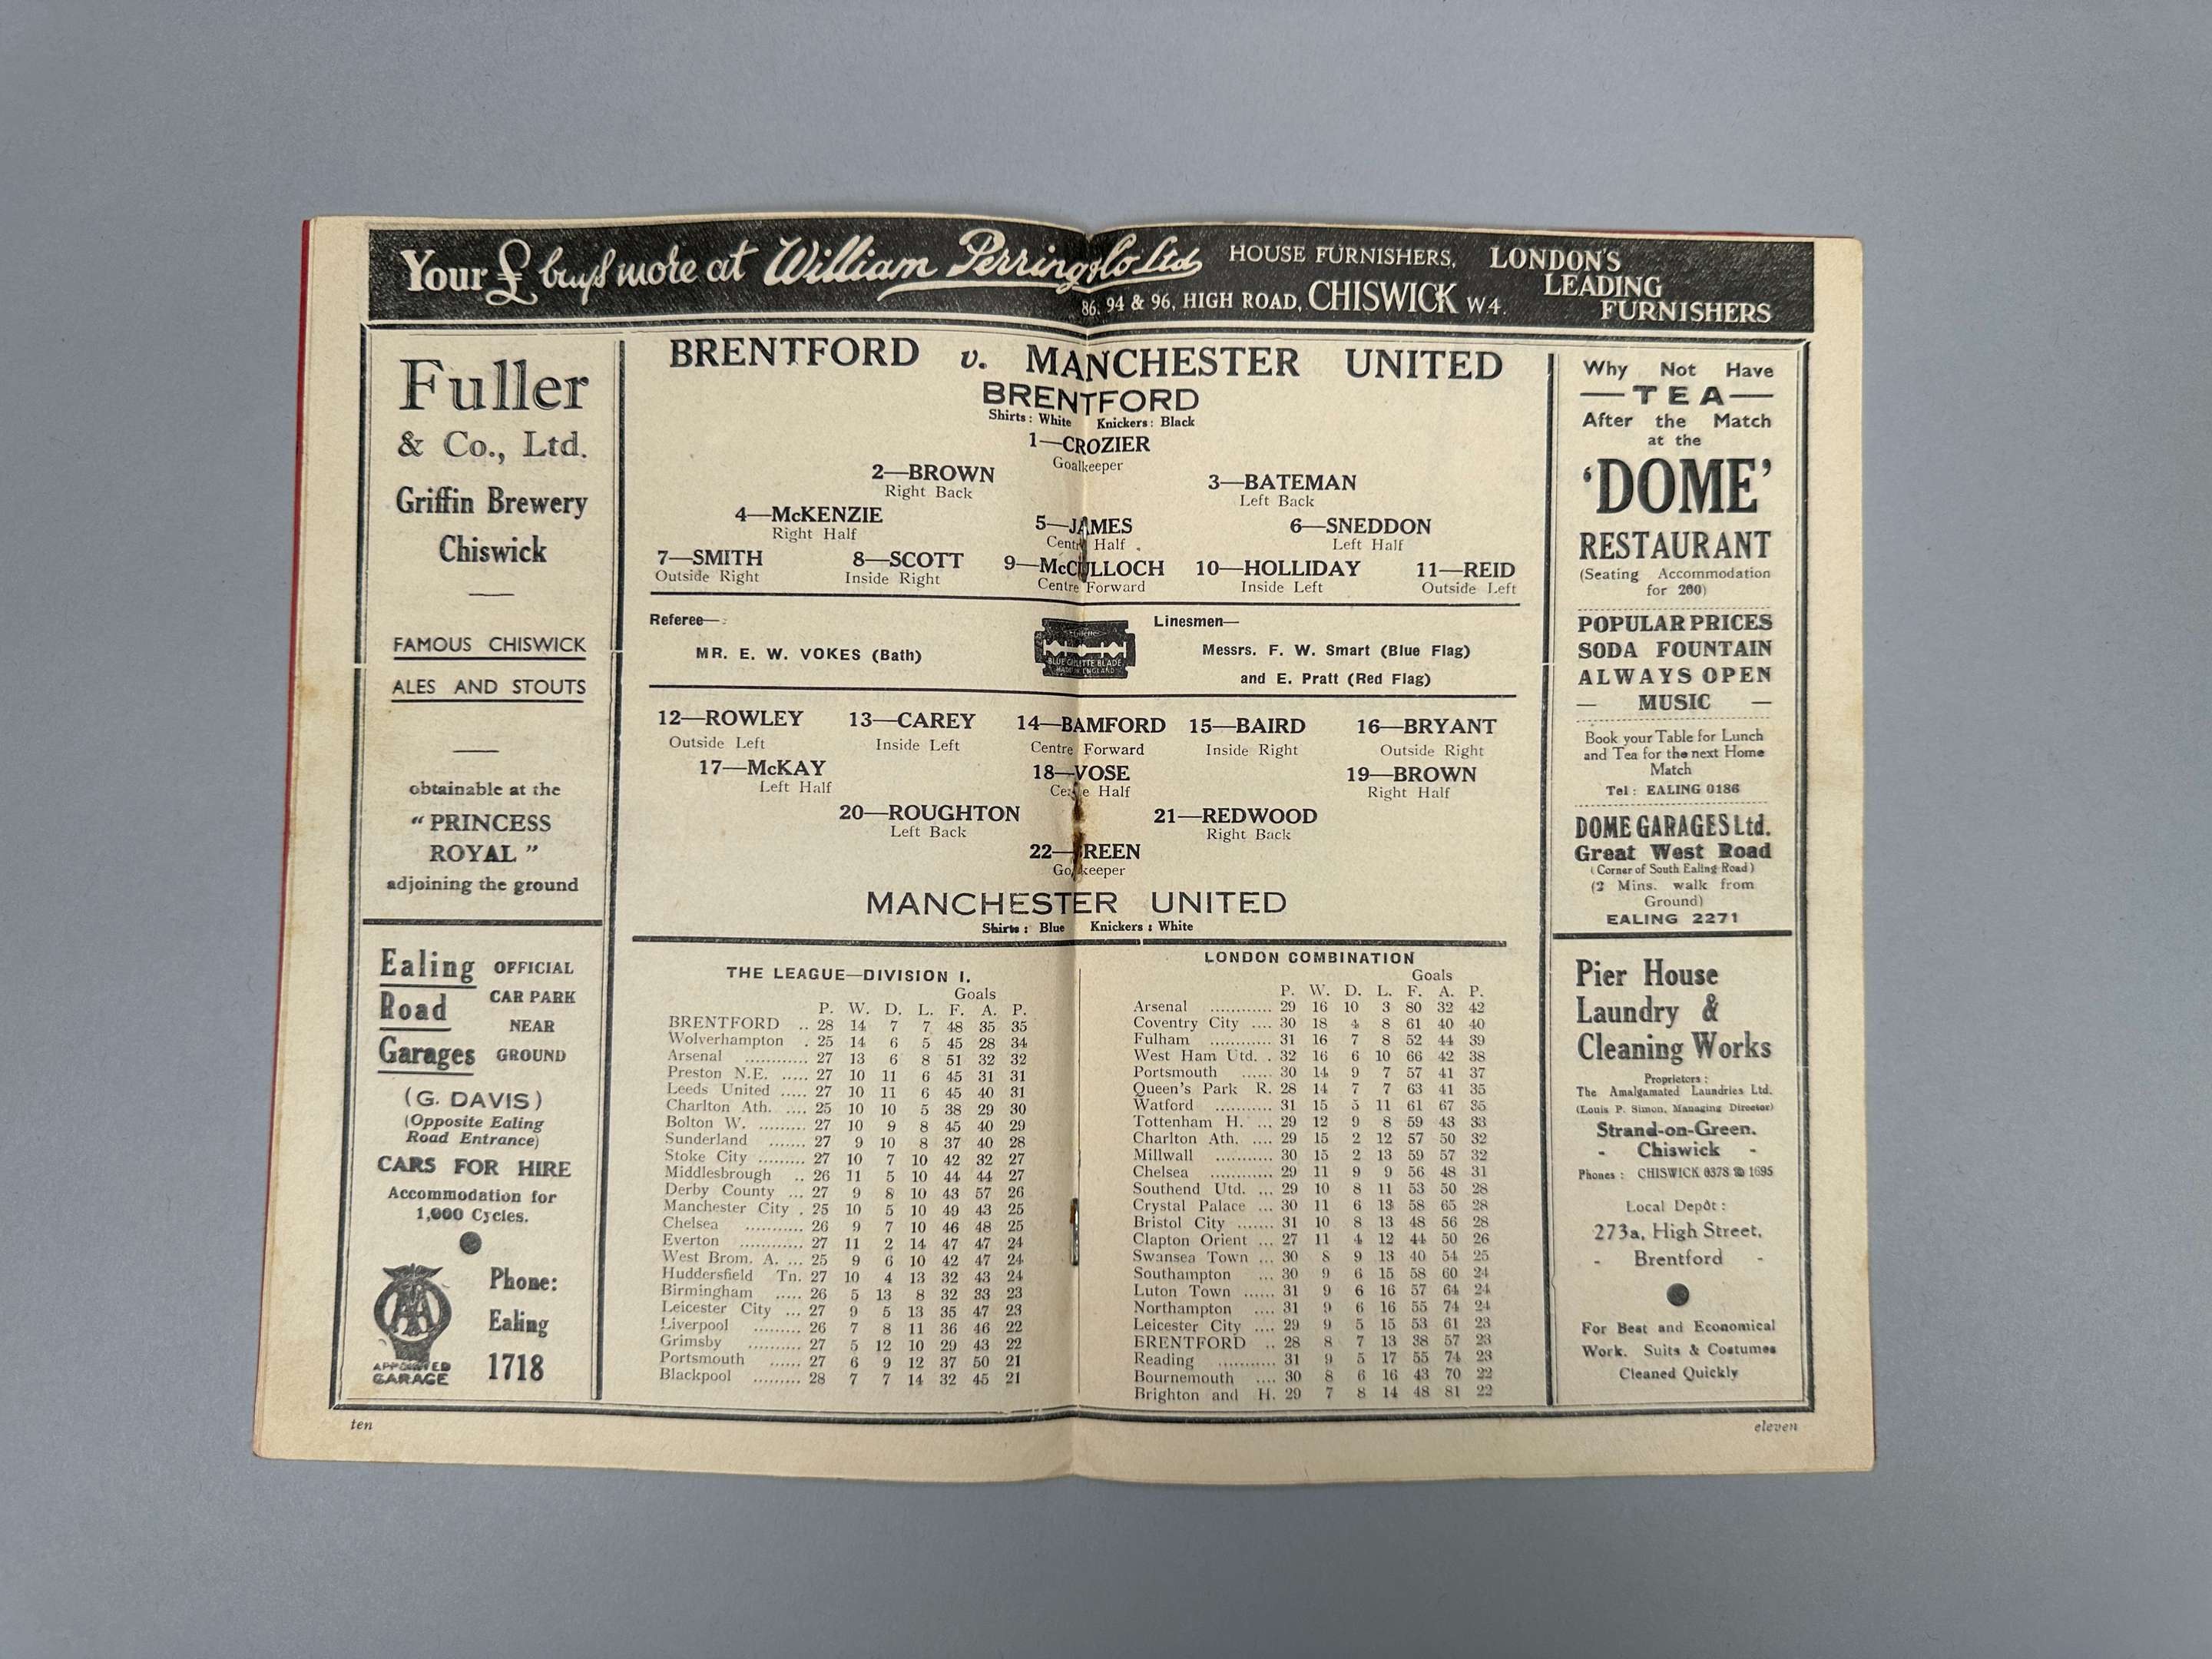 Your £ buys more at William Perring & Co Ltd HOUSE FURNISHERS, LONDON'S
86, 94 & 96, HIGH ROAD, CHISWICK W4. LEADING
FURNISHERS
Fuller
& Co., Ltd.
Griffin Brewery
Chiswick
FAMOUS CHISWICK
ALES AND STOUTS
obtainable at the
" PRINCESS
ROYAL "
adjoining the ground
Ealing OFFICIAL
Road CAR PARK
NEAR
Garages GROUND
(G. DAVIS)
(Opposite Ealing
Road Entrance)
CARS FOR HIRE
Accommodation for
1,000 Cycles.
AA
APPOINTED
GARAGE
Phone:
Ealing
1718
BRENTFORD v. MANCHESTER UNITED
BRENTFORD
Shirts: White Knickers: Black
1—CROZIER
Goalkeeper
2—BROWN 3—BATEMAN
Right Back Left Back
4—McKENZIE 5—JAMES 6—SNEDDON
Right Half Centre Half Left Half
7—SMITH 8—SCOTT 9—McCULLOCH 10—HOLLIDAY 11—REID
Outside Right Inside Right Centre Forward Inside Left Outside Left
Referee— Linesmen—
MR. E. W. VOKES (Bath) Messrs. F. W. Smart (Blue Flag)
and E. Pratt (Red Flag)
Gillette
BLUE GILLETTE BLADE
MADE IN ENGLAND
12—ROWLEY 13—CAREY 14—BAMFORD 15—BAIRD 16—BRYANT
Outside Left Inside Left Centre Forward Inside Right Outside Right
17—McKAY 18—VOSE 19—BROWN
Left Half Centre Half Right Half
20—ROUGHTON 21—REDWOOD
Left Back Right Back
22—BREEN
Goalkeeper
MANCHESTER UNITED
Shirts: Blue Knickers: White
THE LEAGUE—DIVISION I.
Goals
P. W. D. L. F. A. P.
BRENTFORD .. 28 14 7 7 48 35 35
Wolverhampton . 25 14 6 5 45 28 34
Arsenal ............ 27 13 6 8 51 32 32
Preston N.E. ..... 27 10 11 6 45 31 31
Leeds United ..... 27 10 11 6 45 40 31
Charlton Ath. .... 25 10 10 5 38 29 30
Bolton W. ......... 27 10 9 8 45 40 29
Sunderland ....... 27 9 10 8 37 40 28
Stoke City ......... 27 10 7 10 42 32 27
Middlesbrough .. 26 11 5 10 44 44 27
Derby County ... 27 9 8 10 43 57 26
Manchester City . 25 10 5 10 49 43 25
Chelsea ........... 26 9 7 10 46 48 25
Everton ............ 27 11 2 14 47 47 24
West Brom. A. ... 25 9 6 10 42 47 24
Huddersfield Tn. 27 10 4 13 32 43 24
Birmingham ..... 26 5 13 8 32 33 23
Leicester City ... 27 9 5 13 35 47 23
Liverpool ......... 26 7 8 11 36 46 22
Grimsby .......... 27 5 12 10 29 43 22
Portsmouth ...... 27 6 9 12 37 50 21
Blackpool ......... 28 7 7 14 32 45 21
LONDON COMBINATION
Goals
P. W. D. L. F. A. P.
Arsenal ............ 29 16 10 3 80 32 42
Coventry City .... 30 18 4 8 61 40 40
Fulham ............ 31 16 7 8 52 44 39
West Ham Utd. . 32 16 6 10 66 42 38
Portsmouth ...... 30 14 9 7 57 41 37
Queen's Park R. 28 14 7 7 63 41 35
Watford ........... 31 15 5 11 61 67 35
Tottenham H. ... 29 12 9 8 59 43 33
Charlton Ath. .... 29 15 2 12 57 50 32
Millwall ........... 30 15 2 13 59 57 32
Chelsea ............ 29 11 9 9 56 48 31
Southend Utd. ... 29 10 8 11 53 50 28
Crystal Palace ... 30 11 6 13 58 65 28
Bristol City ....... 31 10 8 13 48 56 28
Clapton Orient ... 27 11 4 12 44 50 26
Swansea Town ... 30 8 9 13 40 54 25
Southampton ... 30 9 6 15 58 60 24
Luton Town ...... 31 9 6 16 57 64 24
Northampton .... 31 9 6 16 55 74 24
Leicester City .... 29 9 5 15 53 61 23
BRENTFORD .. 28 8 7 13 38 57 23
Reading ............ 31 9 5 17 55 74 23
Bournemouth .... 30 8 6 16 43 70 22
Brighton and H. 29 7 8 14 48 81 22
Why Not Have
—TEA—
After the Match
at the
'DOME'
RESTAURANT
(Seating Accommodation
for 200)
POPULAR PRICES
SODA FOUNTAIN
ALWAYS OPEN
— MUSIC —
Book your Table for Lunch
and Tea for the next Home
Match
Tel: EALING 0186
DOME GARAGES Ltd.
Great West Road
(Corner of South Ealing Road)
(2 Mins. walk from
Ground)
EALING 2271
Pier House
Laundry &
Cleaning Works
Proprietors:
The Amalgamated Laundries Ltd.
(Louis P. Simon, Managing Director)
Strand-on-Green,
- Chiswick -
Phones: CHISWICK 0378 & 1695
Local Depôt:
273a, High Street,
- Brentford -
For Best and Economical
Work. Suits & Costumes
Cleaned Quickly
ten
eleven